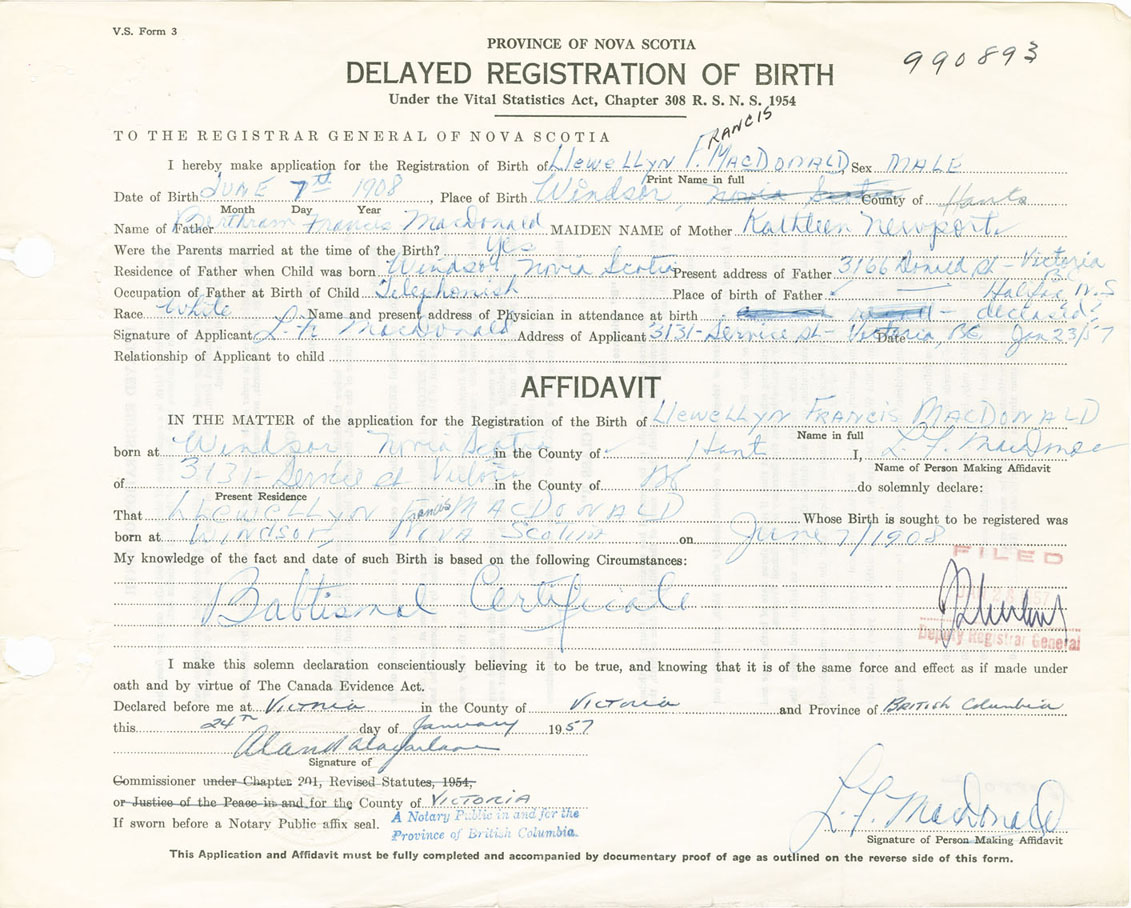 V.S. Form 3
PROVINCE OF NOVA SCOTIA
990893
DELAYED REGISTRATION OF BIRTH
Under the Vital Statistics Act, Chapter 308 R. S. N. S. 1954
TO THE REGISTRAR GENERAL OF NOVA SCOTIA
I hereby make application for the Registration of Birth of LLEWELLYN FRANCIS MACDONALD Sex MALE
Print Name in full
Date of Birth JUNE 7th 1908, Place of Birth Windsor, Novia Scotia County of Hants
Month Day Year
Name of Father Berthram Francis MacDonald MAIDEN NAME of Mother Kathleen Newport
Were the Parents married at the time of the Birth? Yes
Residence of Father when Child was born Windsor, Novia Scotia Present address of Father 3166 Donald St - Victoria B.C.
Occupation of Father at Birth of Child Telephonish Place of birth of Father Halifax N.S
Race White Name and present address of Physician in attendance at birth - deceased?
Signature of Applicant L. F. MacDonald Address of Applicant 3131 - Service St - Victoria, BC Date Jan 23/57
Relationship of Applicant to child
AFFIDAVIT
IN THE MATTER of the application for the Registration of the Birth of LLEWELLYN FRANCIS MACDONALD
Name in full
born at Windsor Novia Scotia in the County of Hant I, L. F. MacDonald
Name of Person Making Affidavit
of 3131 - Service St Victoria in the County of BC do solemnly declare:
Present Residence
That LLEWELLYN Francis MACDONALD Whose Birth is sought to be registered was
born at WINDSOR, NOVA SCOTIA on June 7/1908
My knowledge of the fact and date of such Birth is based on the following Circumstances:
FILED
Babtismal Certificate
Deputy Registrar General
I make this solemn declaration conscientiously believing it to be true, and knowing that it is of the same force and effect as if made under
oath and by virtue of The Canada Evidence Act.
Declared before me at Victoria in the County of Victoria and Province of British Columbia
this 24TH day of January 1957
Signature of
Commissioner under Chapter 201, Revised Statutes, 1954,
or Justice of the Peace in and for the County of VICTORIA
If sworn before a Notary Public affix seal.
A Notary Public in and for the
Province of British Columbia.
L. F. MacDonald
Signature of Person Making Affidavit
This Application and Affidavit must be fully completed and accompanied by documentary proof of age as outlined on the reverse side of this form.